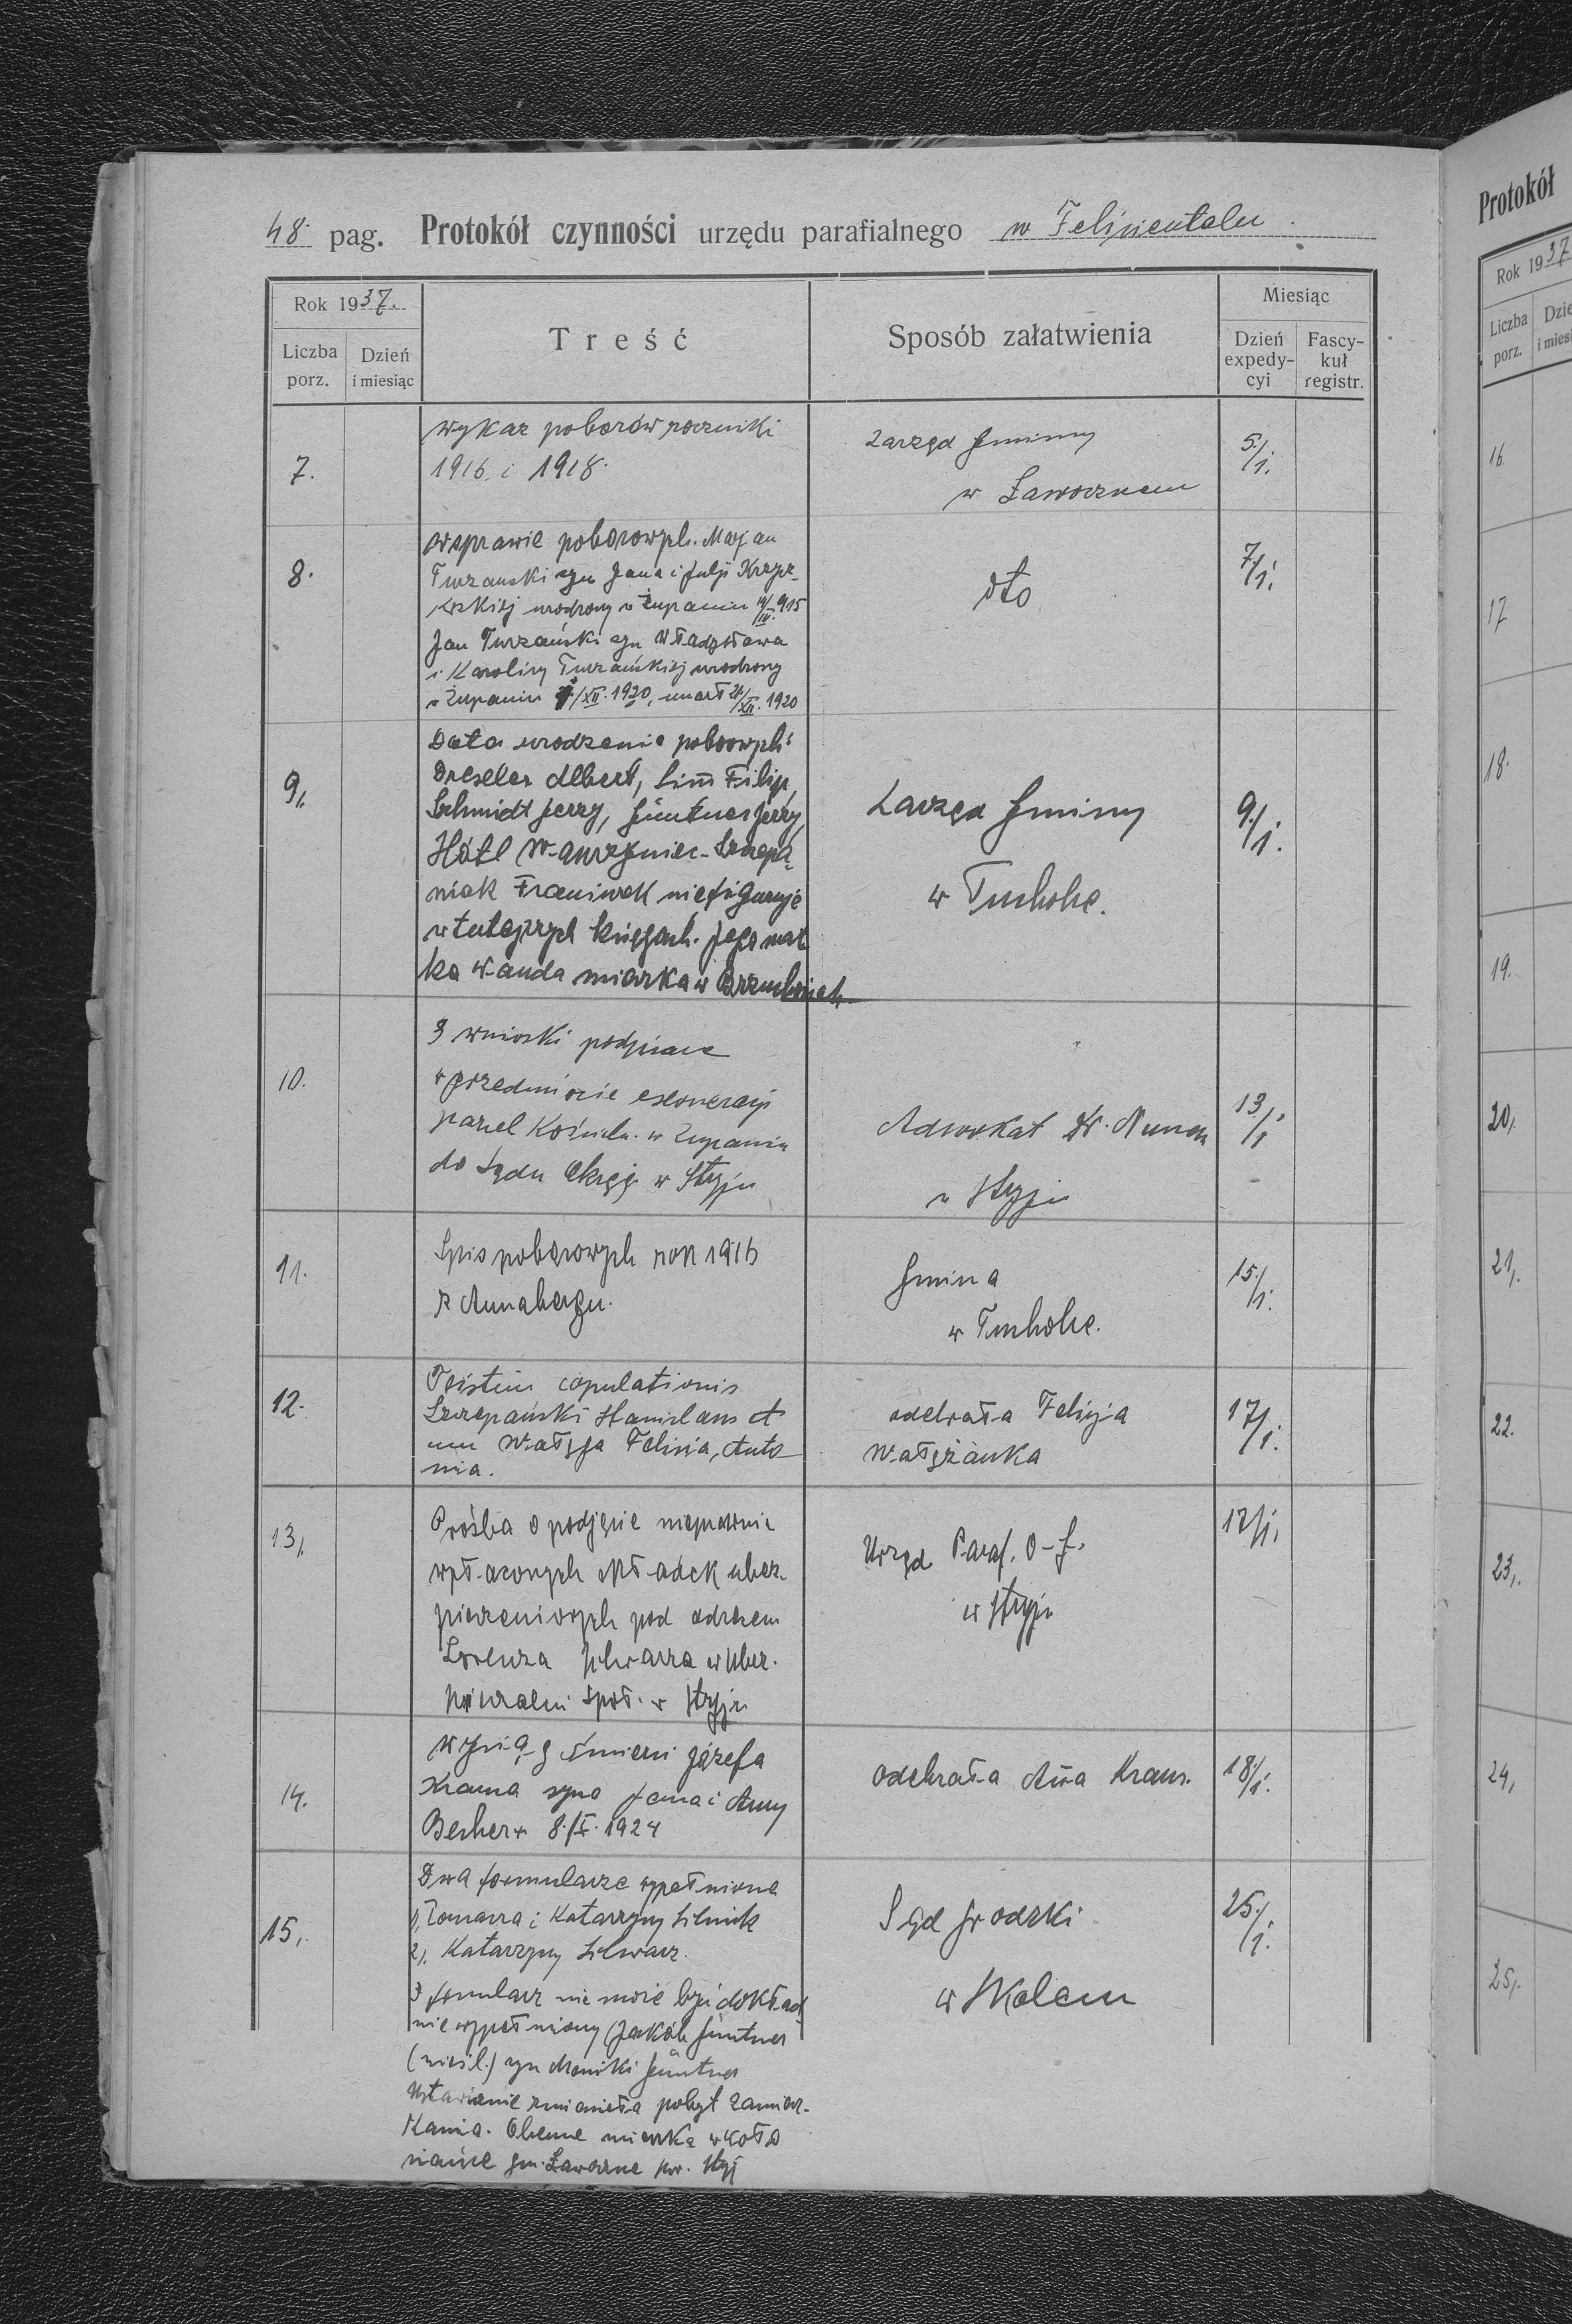 48. pag. Protokół czynności urzędu parafialnego w Felizientalu
Rok 1937.
Liczba porz.
Dzień i miesiąc
Treść
Sposób załatwienia
Miesiąc
Dzień expedy-cyi
Fascy-kuł registr.
7.
wykaz poborów roczniki
1916 i 1918.
Zarząd Gminny
w Ławocznem
5/1.
8.
w sprawie poborowych. Marjan
Turzanski syn Jana i Julji
urodzony w Żupaniu 14/IV. 915
Jan Turzański syn Władysława
i Karoliny Turzańskiej urodzony
w Żupaniu /XII. 1920, umarł 21/XII. 1920
dto
7/1.
9,.
Data urodzenia poborowych:
Dressler Albert, Filip,
Schmidt Jerzy, Güntner Jerzy,
Hötl Wawrzyniec - Szczepa-
niak Franciszek nie figuruje
w tutejszych księgach. Jego mat
ka Wanda mieszka w
Zarząd Gminny
w Tucholce.
9/1.
10.
3 wnioski podpisane
w przedmiocie
parcel Kościeln. w Żupaniu
do Sądu Okręg. w Stryju
Adwokat Dr.
w Stryju
13/1
11.
Spis poborowych rok 1916
z Annabergu.
Gmina
w Tucholce.
15/1.
12.
copulationis
Szczepański Stanislaus et
Wałęga Felicia, Anto-
nia.
odebrała Felicja
Wałężanka
17/1.
13,.
Prośba o podjęcie
wpłaconych składek ubez-
pieczeniowych pod adresem
Lorenza Schwarza w Ubez-
pieczalni Społ. w Stryju
Urząd Paraf. O-Ł.
w Stryju
17/1.
14.
Wyciąg śmierci Józefa
Krausa syna Jana i Anny
Becher + 8./X. 1924
odebrała Anna Kraus.
18/1.
15,.
Dwa formularze wypełnione
1). Tomasza i Katarzyny
2). Katarzyny Schwarz.
3 formularz nie może być dokład
nie wypełniony (Jakób Güntner
syn Moniki Güntner
zmieniła pobyt zamiesz-
kania. Obecnie mieszka w
gm. Ławoczne pw. Stryj
Sąd Grodzki
w Skolem
25/1.
Protokół
Rok 1937
Liczba porz.
16.
17
18.
19.
20,.
21,.
22.
23,.
24,
25,.